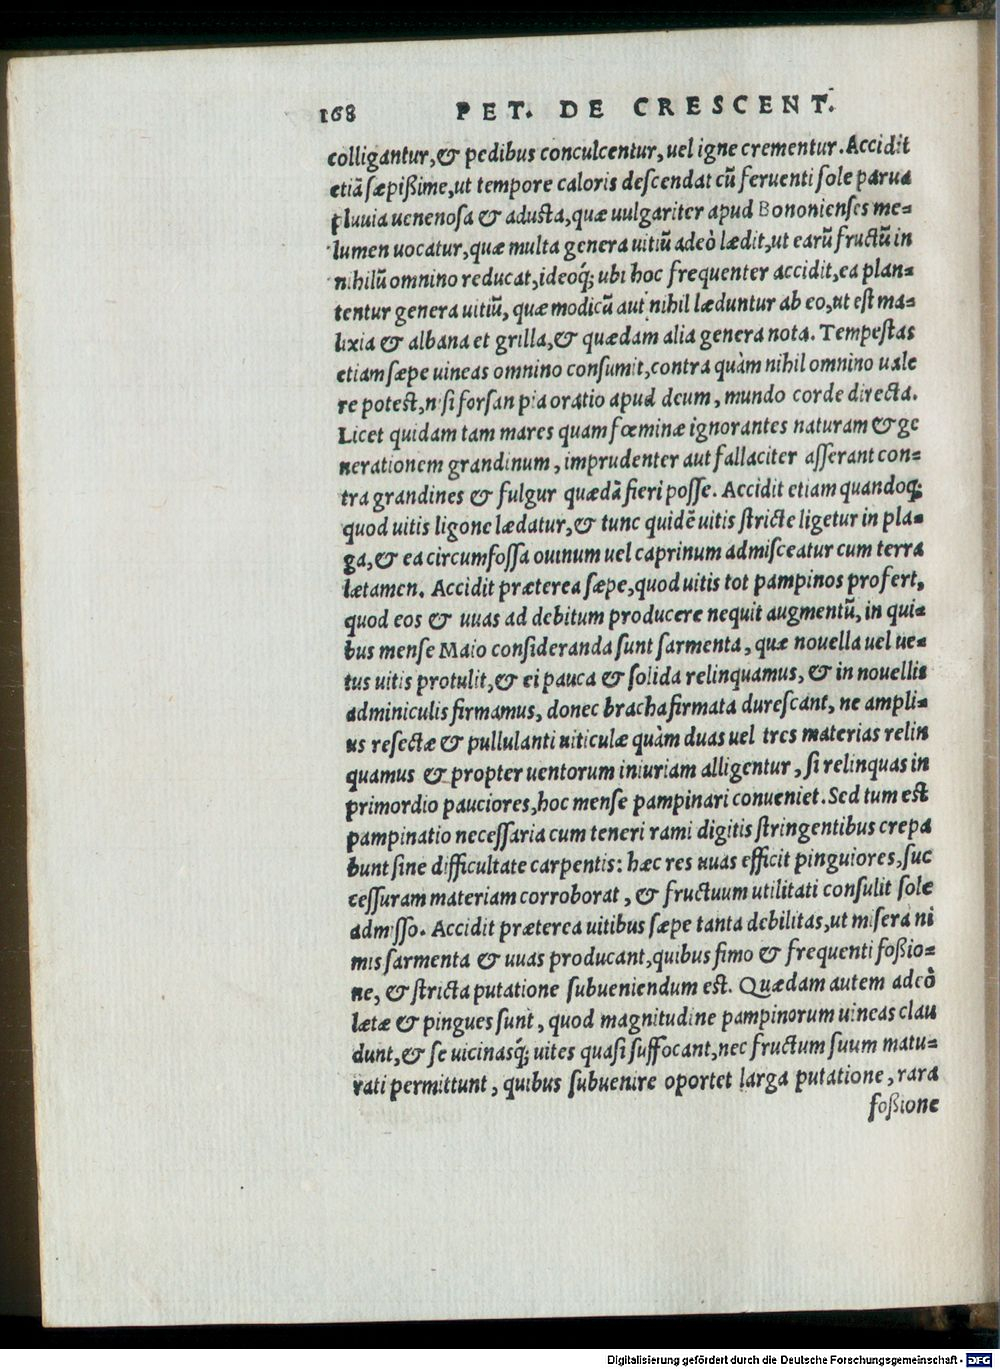 168 PET. DE CRESCENT.
colligantur,& pedibus conculcentur, uel igne crementur. Accidit
etiã sæpißime, ut tempore caloris descendat cũ feruenti sole parua
pluuia uenenosa & adusta, quæ uulgariter apud Bononienses me=
lumen uocatur, quæ multa genera uitiũ adeò lædit, ut earũ fructũ in
nihilũ omnino reducat, ideoq́; ubi hoc frequenter accidit, ea plan=
tentur genera uitiũ, quæ modicũ aut nihil læduntur ab eo, ut est ma=
lixia & albana et grilla,& quædam alia genera nota. Tempestas
etiam sæpe uineas omnino consumit, contra quàm nihil omnino uale
re potest, nisi forsan pia oratio apud deum, mundo corde directa.
Licet quidam tam mares quam fœminæ ignorantes naturam & ge
nerationem grandinum, imprudenter aut fallaciter asserant con=
tra grandines & fulgur quædã fieri posse. Accidit etiam quandoq;
quod uitis ligone lædatur,& tunc quidẽ uitis stricte ligetur in pla=
ga,& ea circumfossa ouinum uel caprinum admisceatur cum terra
lætamen. Accidit præterea sæpe, quod uitis tot pampinos profert,
quod eos & uuas ad debitum producere nequit augmentũ, in qui=
bus mense Maio consideranda sunt sarmenta, quæ nouella uel ue=
tus uitis protulit,& ei pauca & solida relinquamus, & in nouellis
adminiculis firmamus, donec bracha firmata durescant, ne ampli=
us resectæ & pullulanti uiticulæ quàm duas uel tres materias relin
quamus & propter uentorum iniuriam alligentur, si relinquas in
primordio pauciores, hoc mense pampinari conueniet. Sed tum est
pampinatio necessaria cum teneri rami digitis stringentibus crepa
bunt sine difficultate carpentis: hæc res uuas efficit pinguiores, suc
cessuram materiam corroborat, & fructuum utilitati consulit sole
admisso. Accidit præterea uitibus sæpe tanta debilitas, ut misera ni
mis sarmenta & uuas producant, quibus fimo & frequenti foßio=
ne, & stricta putatione subueniendum est. Quædam autem adeò
lætæ & pingues sunt, quod magnitudine pampinorum uineas clau
dunt,& se uicinasq́; uites quasi suffocant, nec fructum suum matu=
rati permittunt, quibus subuenire oportet larga putatione, rara
foßione
Digitalisierung gefördert durch die Deutsche Forschungsgemeinschaft - DFG